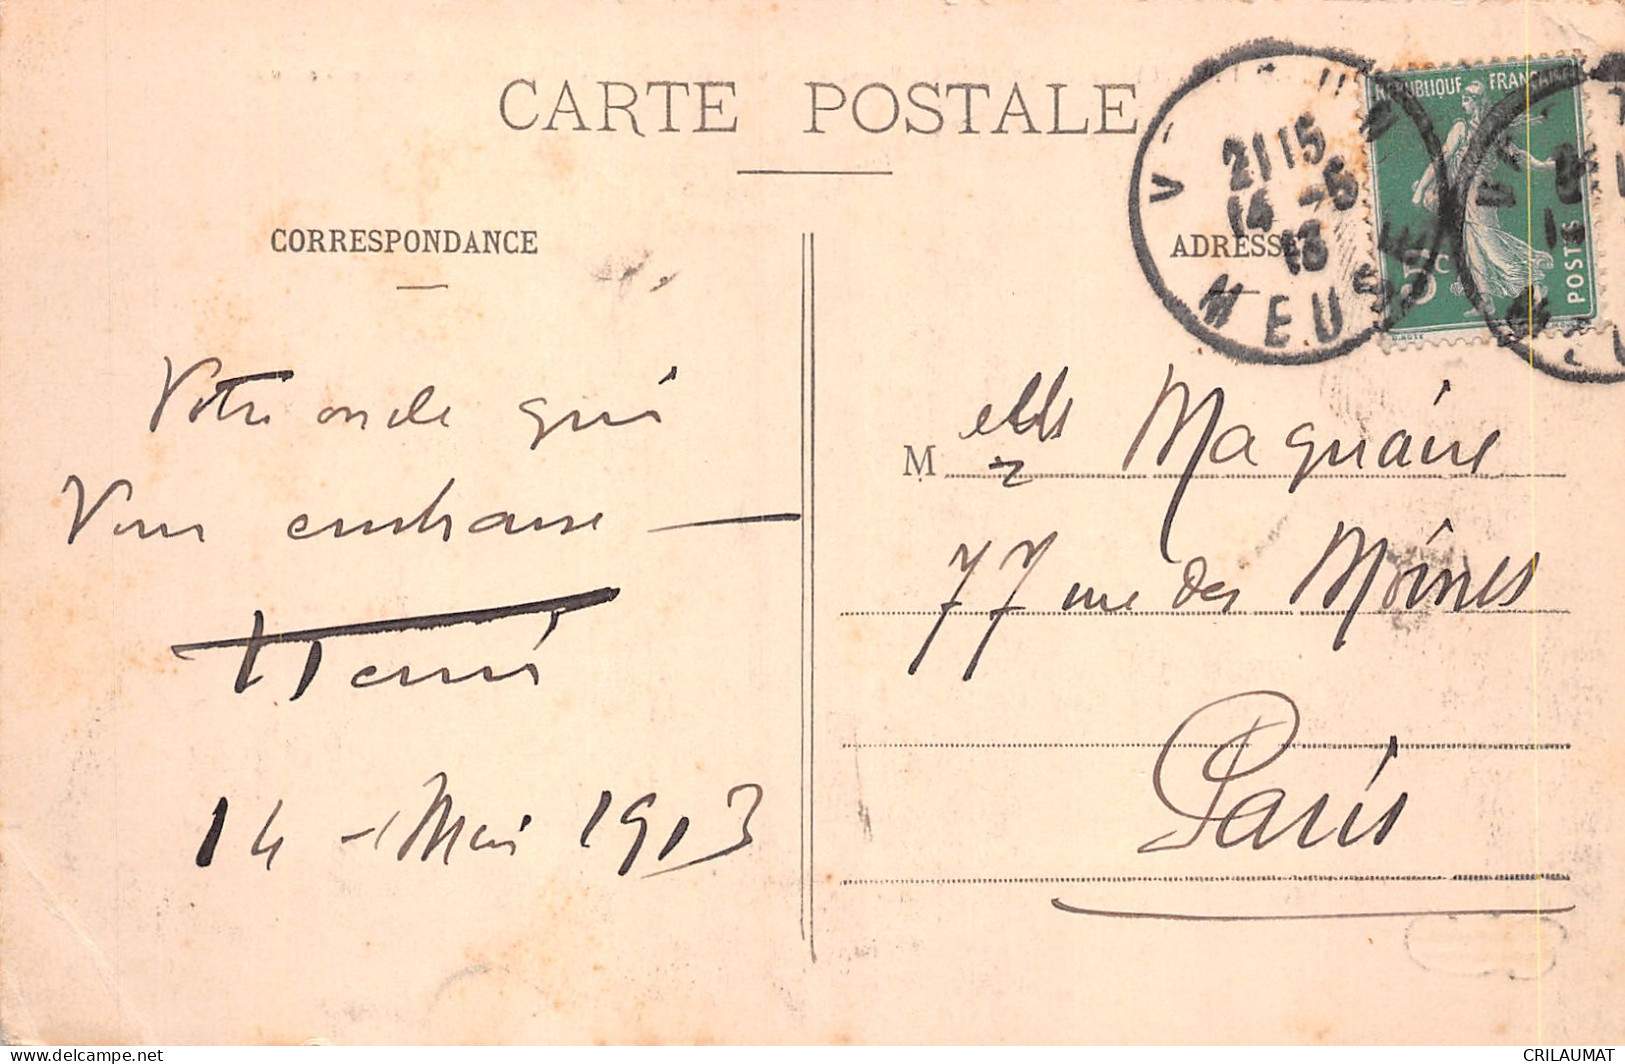 CARTE POSTALE
CORRESPONDANCE
ADRESSE
RÉPUBLIQUE FRANÇAISE
POSTES
5c
21 15
14 -5
13
MEUSE
Votre oncle qui
Vous embrasse —
Henri
14 - Mai 1913
M elles Maquaire
77 rue des Moines
Paris
www.delcampe.net
CRILAUMAT